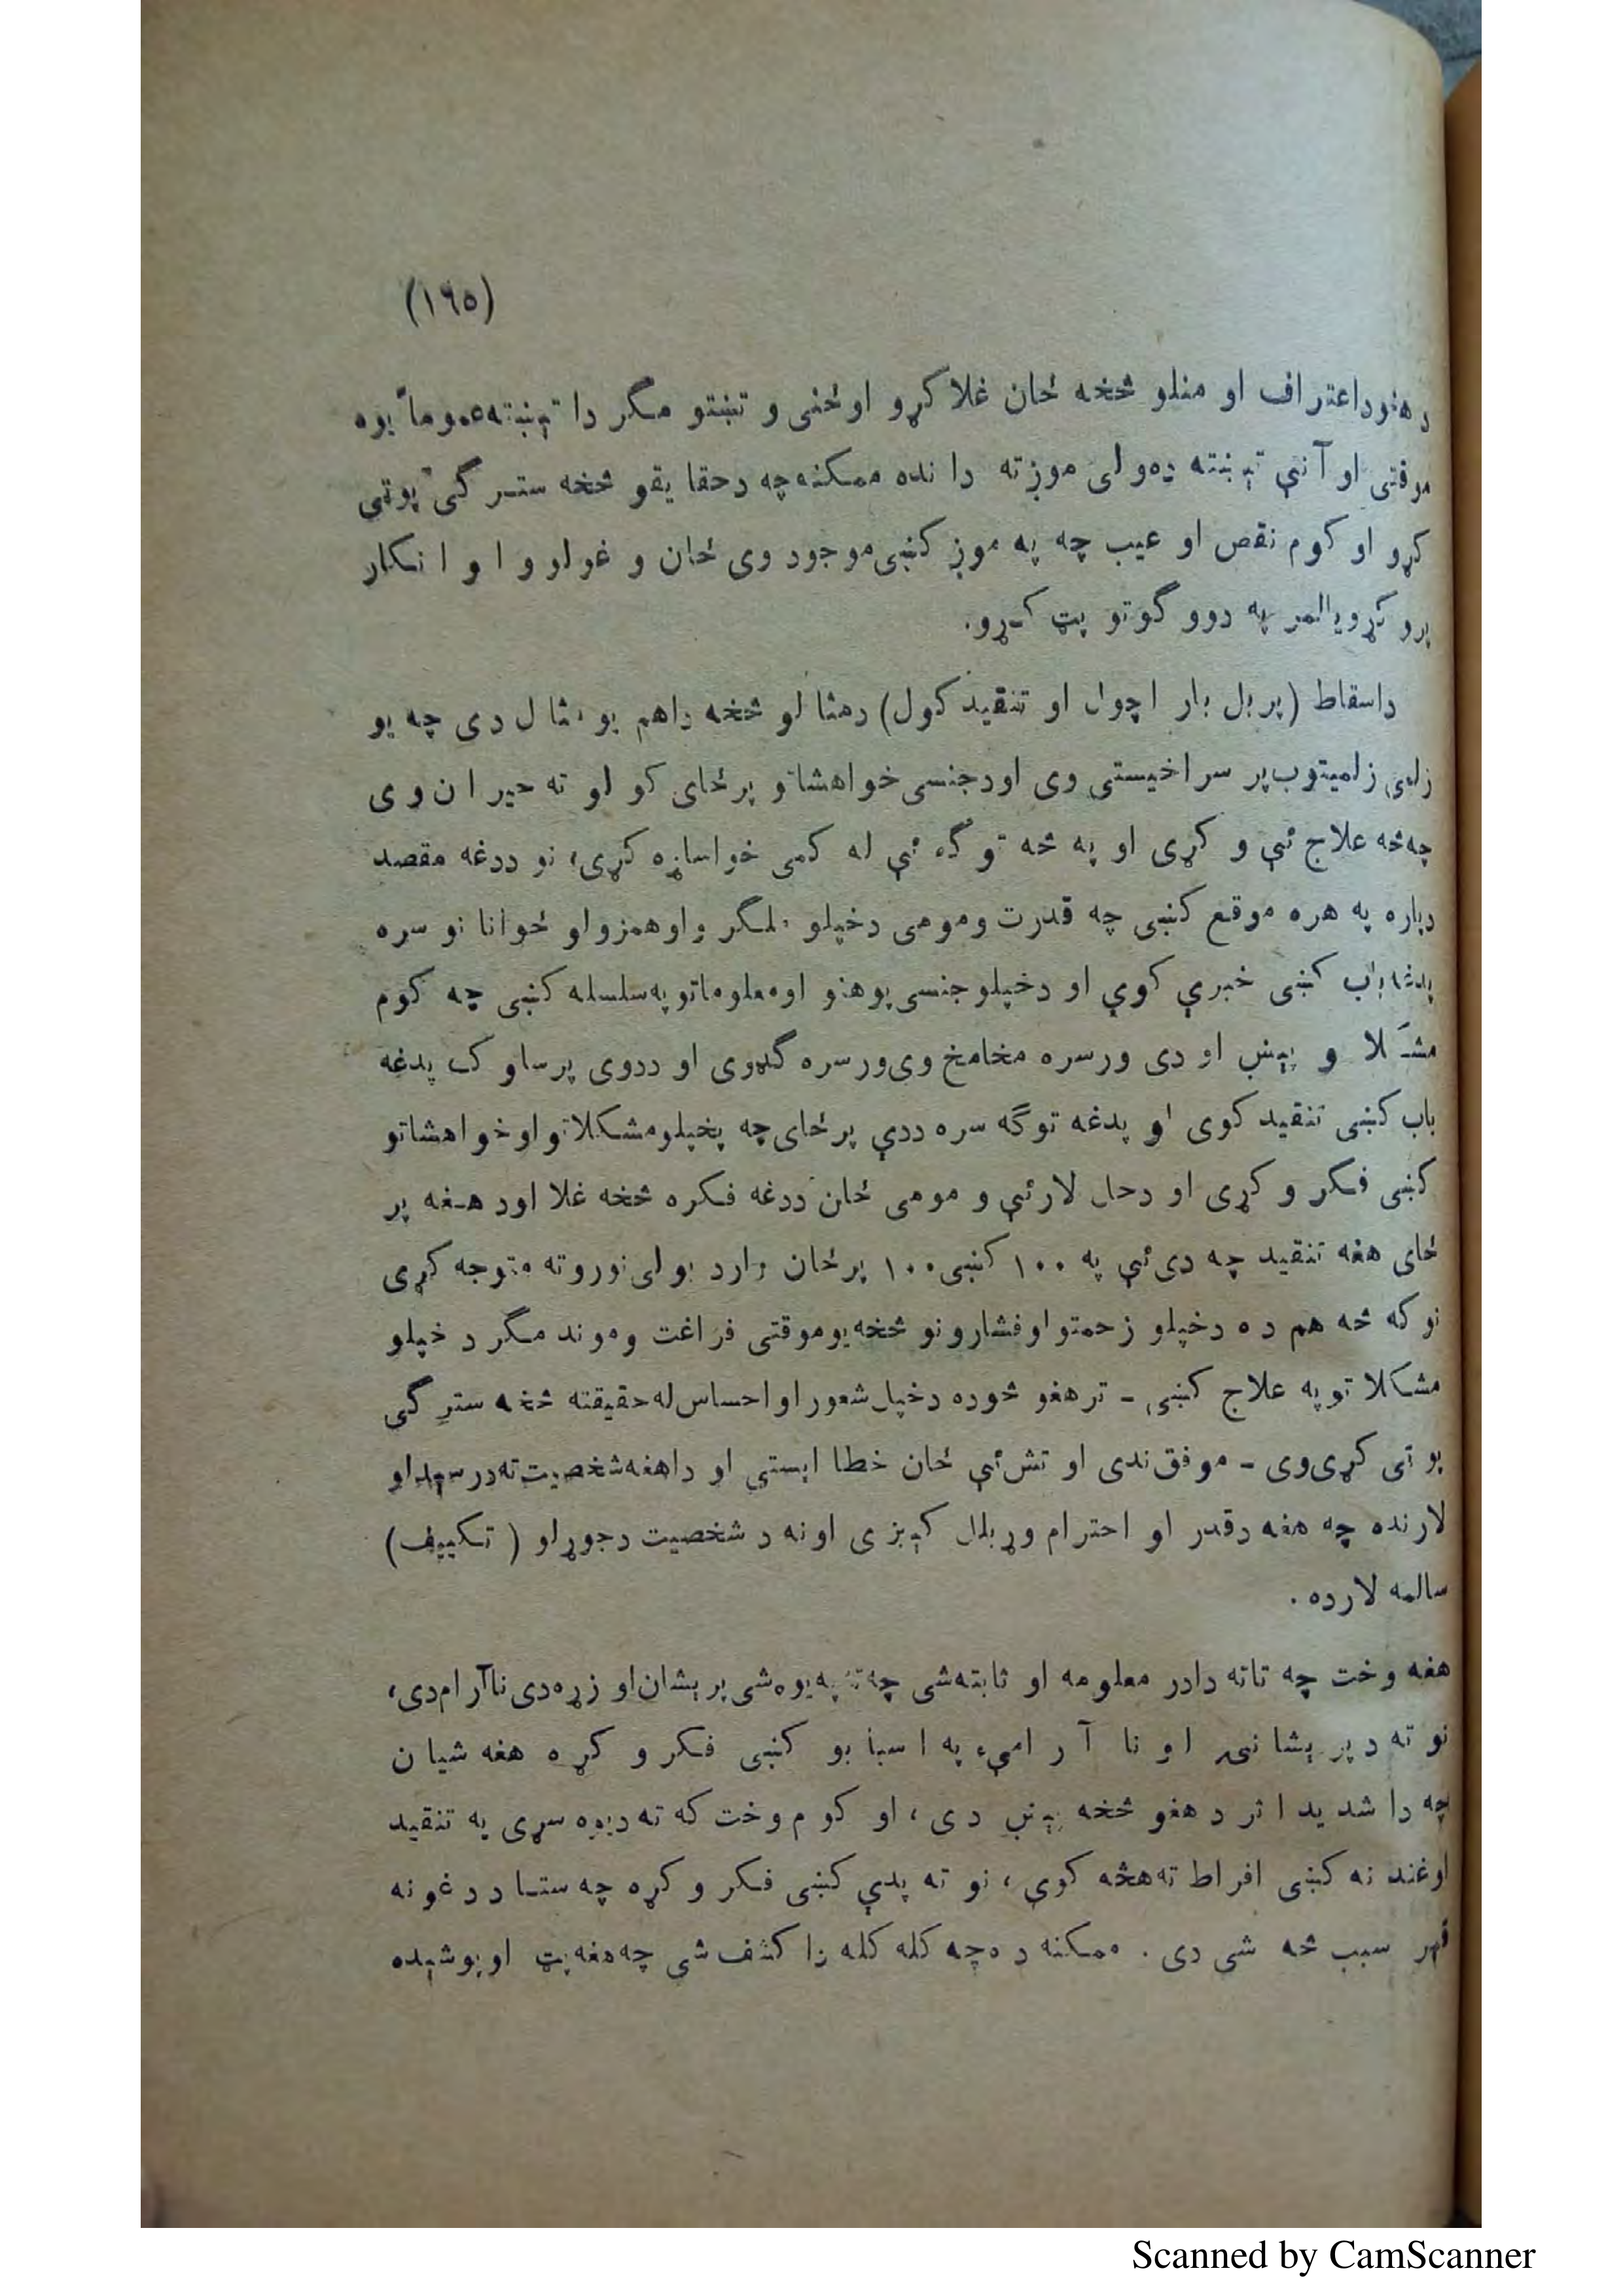 (١٦٥)
د هغود اعتراف او منلو څخه ځان غلا کړو او ځنی و تښتو مگر دا تېښته عموماً یوه
موقتی او آنی تېښته ده ولی موږ ته دا نده ممکنه چه د حقا یقو څخه ستر گی پوټی
کړو او کوم نقص او عیب چه په موږ کښی موجود وی ځان و غولوو ا و ا نکار
پرو کړو یا لمر په دوو گوتو پټ کړو.
داسقاط (پر بل بار اچول او تنقید کول) د مثا لو څخه دا هم یو مثا ل دی چه یو
زلمی زلمیتوب پر سر اخیستی وی او د جنسی خواهشاتو پر ځای کو لو ته حیر ا ن و ی
چه څه علاج ئې و کړی او په څه تو گه ئې له کمی خوا ساړه کړی، نو ددغه مقصد
دپاره په هره موقع کښی چه قدرت ومومی دخپلو ملگر و او همزولو ځوانا نو سره
پدغه باب کښی خبرې کوي او دخپلو جنسی پوهنو او معلوماتو په سلسله کښی چه کوم
مشکلا و پېښ او دی ورسره مخامخ وی ورسره گډوی او ددوی پر سلو ک پدغه
باب کښی تنقید کوی او پدغه توگه سره ددې پر ځای چه پخپلو مشکلاتو او خواهشاتو
کښی فکر و کړی او دحل لار ئې و مومی ځان ددغه فکره څخه غلا او د هغه پر
ځای هغه تنقید چه دی ئې په ١٠٠ کښی ١٠٠ پر ځان وارد بولی نورو ته متوجه کړی
نو که څه هم ده دخپلو زحمتو او فشارونو څخه یو موقتی فراغت وموند مگر د خپلو
مشکلا تو په علاج کښی - تر هغو څوده دخپل شعور او احساس له حقیقته څخه ستر گی
پو ټی کړی وی - موفق ندی او تش ئې ځان خطا ایستی او دا هغه شخصیت ته در سېدلو
لار نده چه هغه د قدر او احترام وړ بلل کېږ ی او نه د شخصیت د جوړ لو ( تکییف )
سالمه لار ده .
هغه وخت چه تاته دا در معلومه او ثابته شی چه ته په یوه شی پر یشان او زړه دی نا آرام دی،
نو ته د پر یشا نی ا و نا آ ر امی په ا سبا بو کښی فکر و کړ ه هغه شیا ن
چه دا شد ید ا ثر د هغو څخه پېښ دی ، او کو م وخت که ته د یوه سړی په تنقید
او غند نه کښی افراط ته هڅه کوې ، نو ته پدې کښی فکر و کړه چه ستا د د غو نه
قهر سبب څه شی دی . ممکنه ده چه کله کله دا کشف شی چه هغه پټ او پوشیده
Scanned by CamScanner